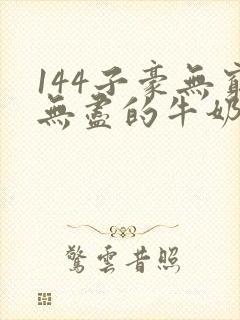 144子豪無窮
無盡的牛奶
驚雲昔照